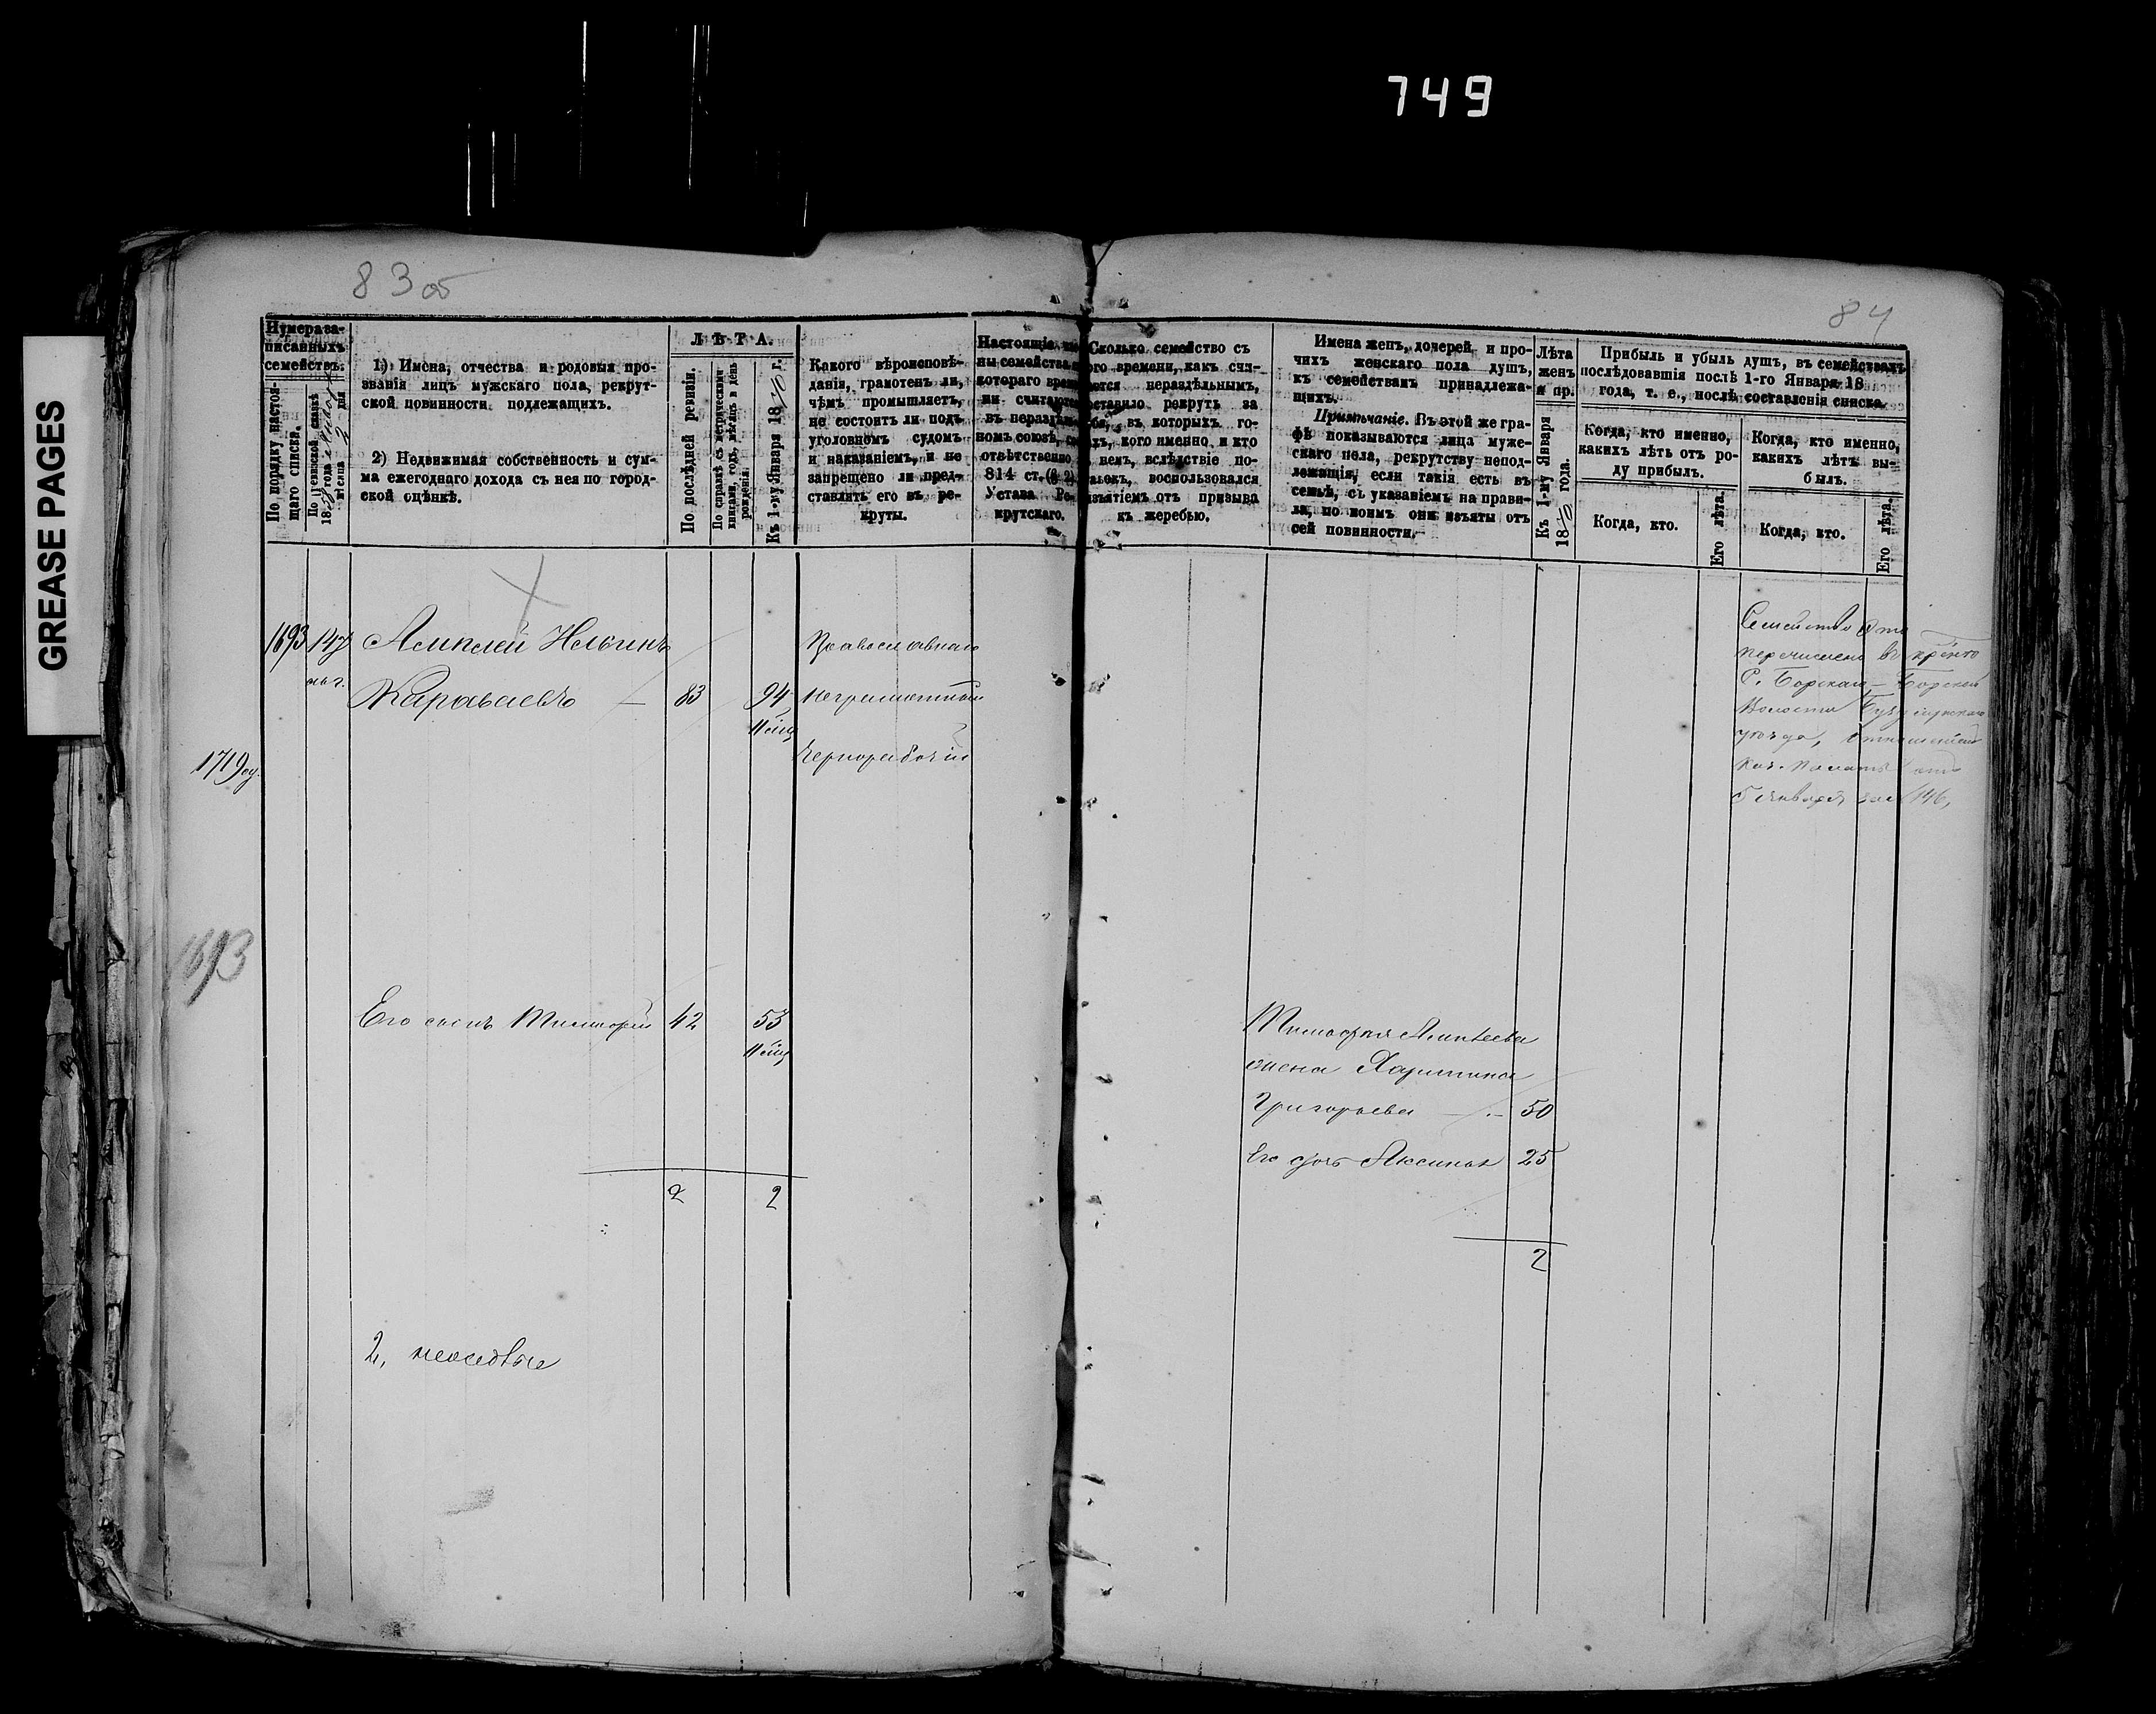 749
GREASE PAGES
83 об
84
Нумера за-
писанныхъ
семействъ.
По порядку настоя-
щаго списка.
По ревизской сказкѣ
18 года
мѣсяца 2 дня
1) Имена, отчества и родовыя про-
званія лицъ мужскаго пола, рекрут-
ской повинности подлежащихъ.
2) Недвижимая собственность и сум-
ма ежегоднаго дохода съ нея по город-
ской оцѣнкѣ.
ЛѢТА.
По послѣдней ревизіи.
По справкѣ съ метрическими
книгами, годъ, мѣсяцъ и день
рожденія.
Къ 1-му Января 1870 г.
Какого вѣроисповѣ-
данія, грамотенъ ли,
чѣмъ промышляетъ,
не состоитъ ли подъ
уголовномъ судомъ
и наказаніемъ, и не
запрещено ли пред-
ставлять его въ ре-
круты.
Настоящіе
ны семейства
котораго врем
ни считаются
въ нераздѣль
номъ союзѣ,
отвѣтственно
814 ст. (§ 2)
Устава Ре-
крутскаго.
Сколько семейство съ
ого времени, какъ счи-
ается нераздѣльнымъ,
оставило рекрутъ за
бя, въ которыхъ го-
хъ, кого именно и кто
нелъ, вслѣдствіе по-
ьекъ, воспользовался
изъятіемъ отъ призыва
къ жеребью.
Имена женъ, дочерей и про-
чихъ женскаго пола душъ,
къ семействамъ принадлежа-
щихъ.
Примѣчаніе. Въ этой же гра-
фѣ показываются лица муже-
скаго пола, рекрутству непод-
лежащія, если такія есть въ
семьѣ, съ указаніемъ на прави-
ла, по коимъ они изъяты отъ
сей повинности.
Лѣта
женъ
и пр.
Къ 1-му Января
1870 года.
Прибыль и убыль душъ, въ семействахъ
послѣдовавшія послѣ 1-го Января 18
года, т. е., послѣ составленія списка.
Когда, кто именно,
какихъ лѣтъ отъ ро-
ду прибылъ.
Когда, кто.
Его лѣта.
Когда, кто именно,
какихъ лѣтъ вы-
былъ.
Когда, кто.
Его лѣта.
1693 147 Алиптей Ильинъ
Караваевъ — 83 94
Православнаго
неграмотный
чернорабочій
1719
1693
Семейство это
перечислено въ кр
С. Борское Борской
Волости Бузулукскаго
уѣзда, отношеніем
Каз. Палаты отъ
5 Января за № 146,
Его сынъ Тимофей 42 53
Тимофея Алиптеева
жена Харитина
Григорьева — 50
Его дочь Аксинья 25
2 2
2
2,